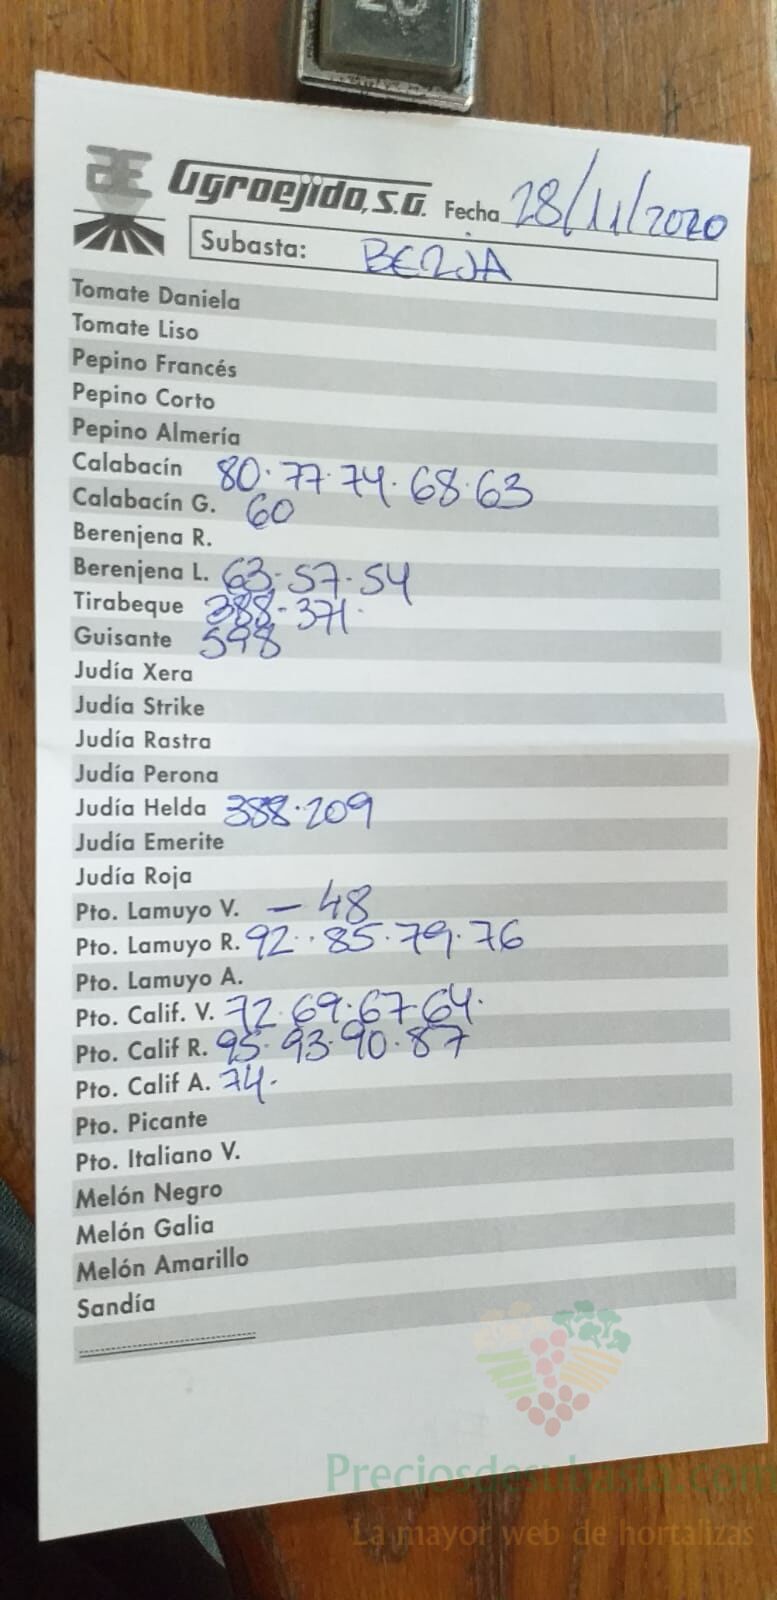 20
Æ Agroejido, S.A. Fecha 28/11/2020
Subasta: BERJA
Tomate Daniela
Tomate Liso
Pepino Francés
Pepino Corto
Pepino Almería
Calabacín 80.77.74.68.63
Calabacín G. 60
Berenjena R.
Berenjena L. 63.57.54
Tirabeque 388-371.
Guisante 598
Judía Xera
Judía Strike
Judía Rastra
Judía Perona
Judía Helda 388.209
Judía Emerite
Judía Roja
Pto. Lamuyo V. — 48
Pto. Lamuyo R. 92..85.79.76
Pto. Lamuyo A.
Pto. Calif. V. 72.69.67.64.
Pto. Calif R. 95.93.90.87
Pto. Calif A. 74.
Pto. Picante
Pto. Italiano V.
Melón Negro
Melón Galia
Melón Amarillo
Sandía
Preciosdesubasta.com
La mayor web de hortalizas